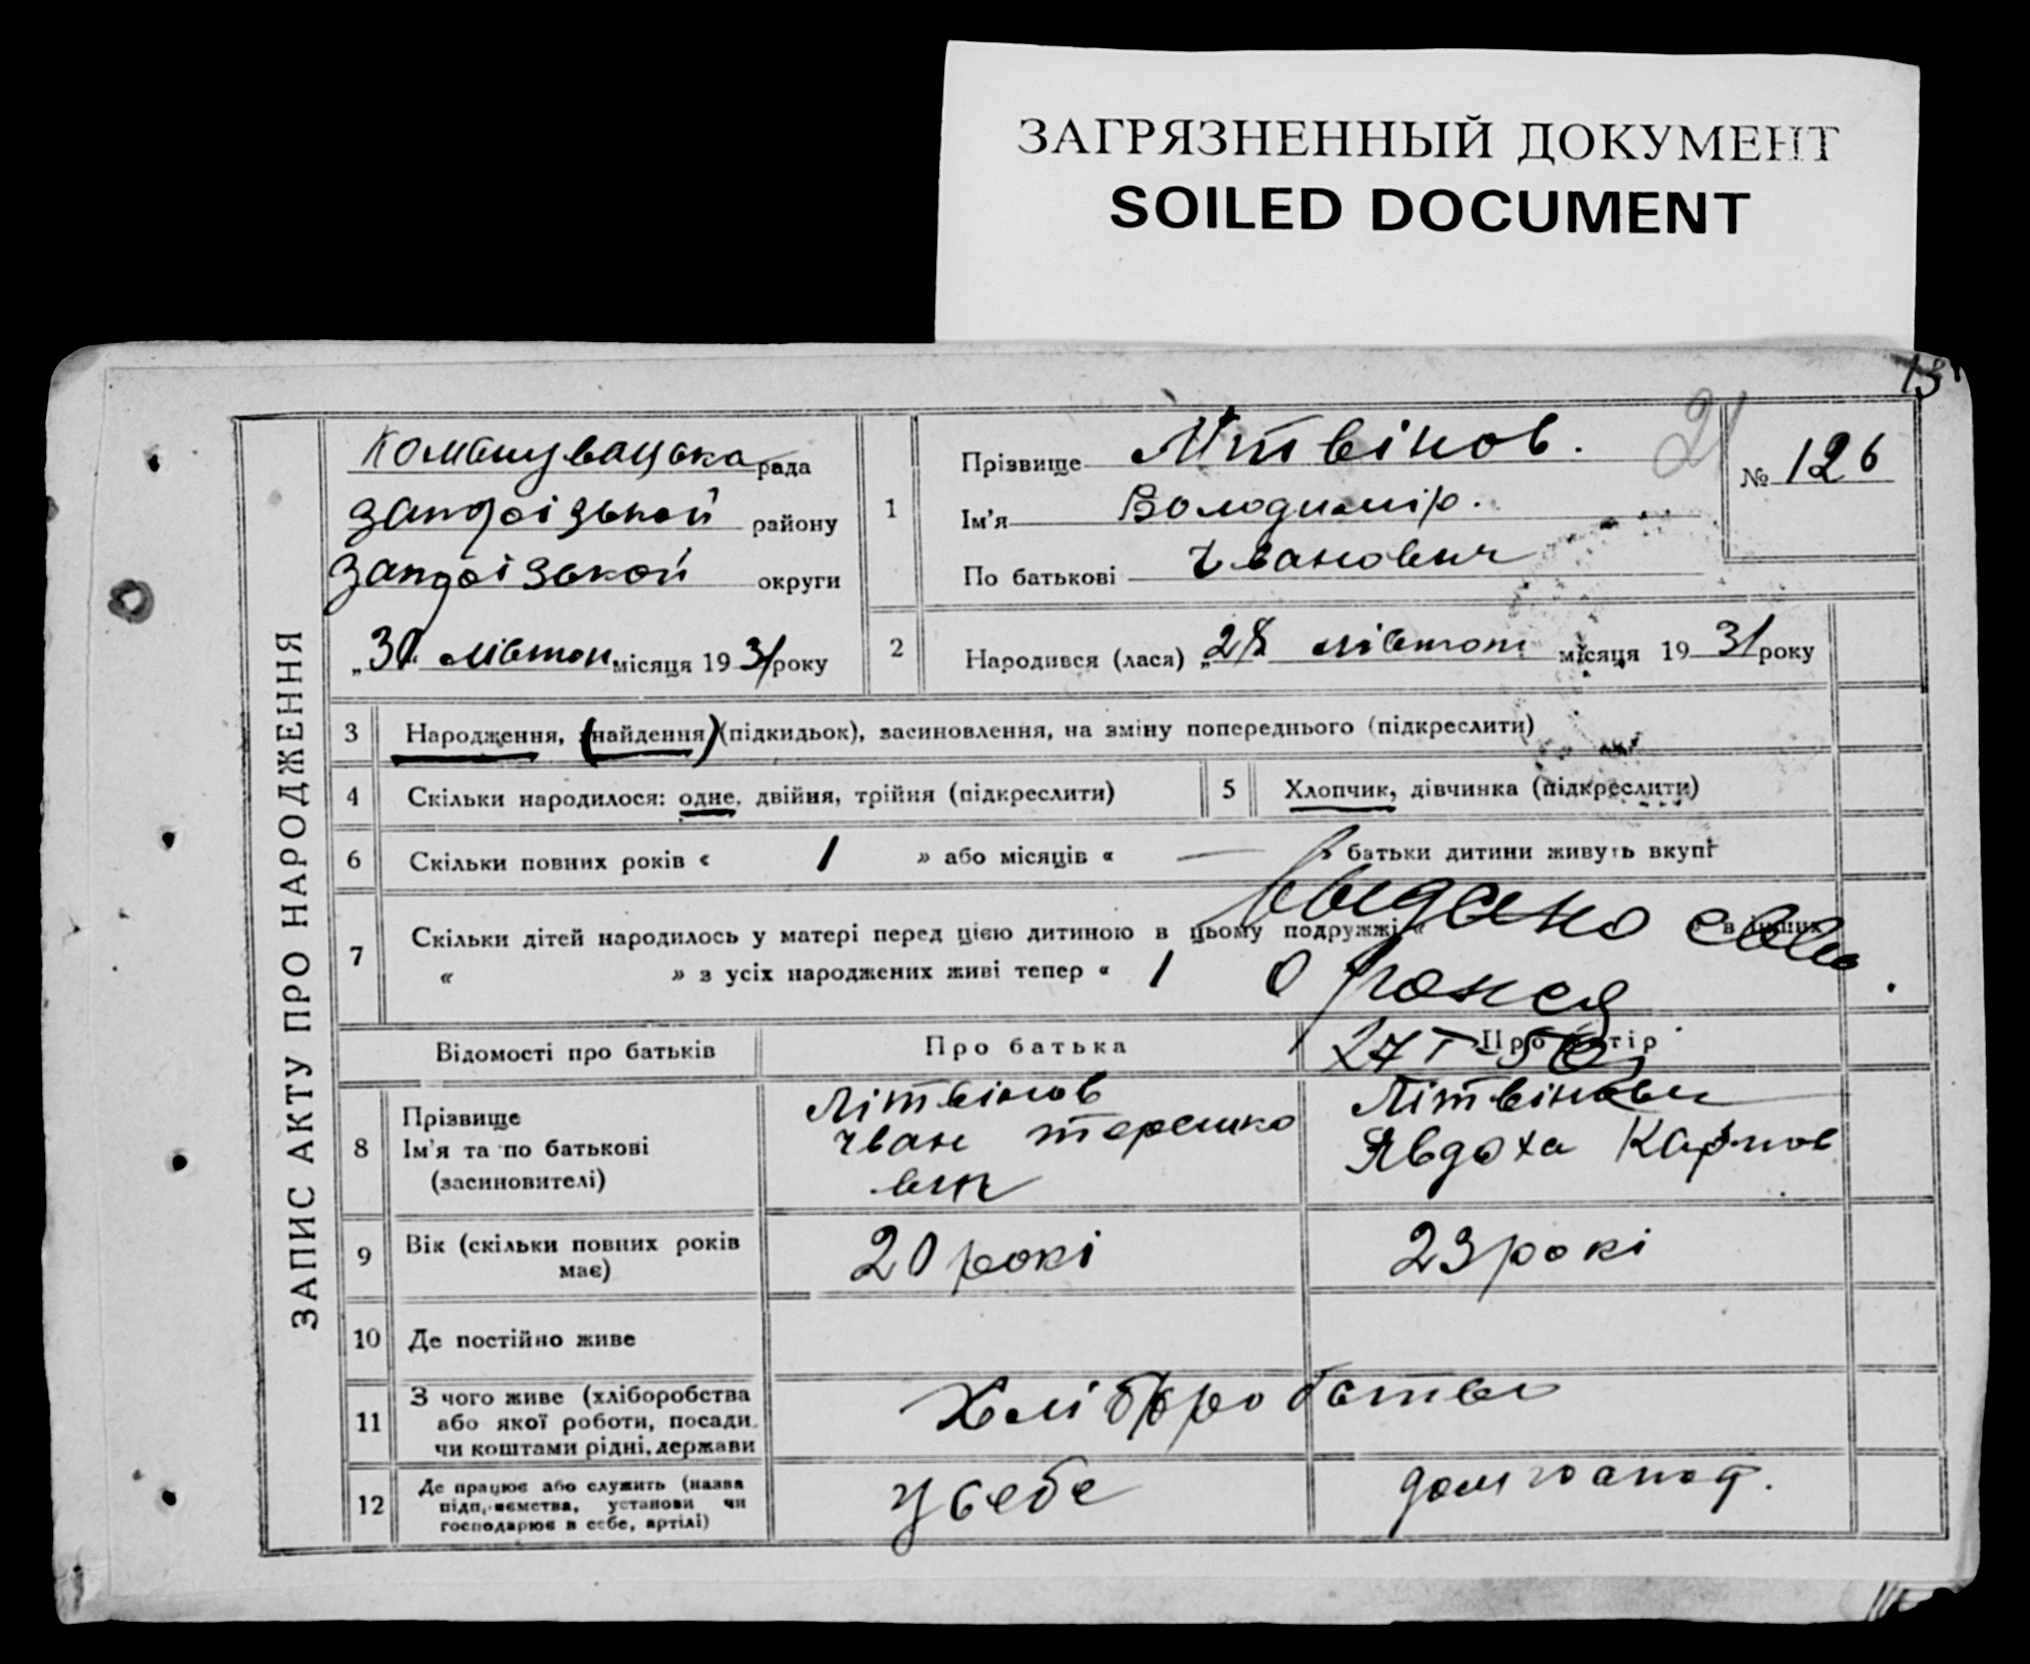 ЗАГРЯЗНЕННЫЙ ДОКУМЕНТ
SOILED DOCUMENT
ЗАПИС АКТУ ПРО НАРОДЖЕННЯ
Комишувацька рада
району
округи
„30 лютого місяця 1931 року
1
Прізвище Літвінов.
Ім'я Володимір.
По батькові Іванович
21
№ 126
2
Народився (лася) „28 місяця 1931 року
3 Народження, (найдення) (підкидьок), засиновлення, на зміну попереднього (підкреслити)
4 Скільки народилося: одне, двійня, трійня (підкреслити)
5 Хлопчик, дівчинка (підкреслити)
6 Скільки повних років « 1 » або місяців « — » батьки дитини живуть вкупі
7 Скільки дітей народилось у матері перед цією дитиною в цьому подружжі « » в інших
« » з усіх народжених живі тепер « 1 0
Відомості про батьків
Про батька
8 Прізвище
Ім'я та по батькові
(засиновителі)
Літвінов
Іван Терешко
вич
Літвінова
Явдоха Карпов
9 Вік (скільки повних років
має)
20 рокі
23 рокі
10 Де постійно живе
11 З чого живе (хліборобства
або якої роботи, посади
чи коштами рідні, держави
12 Де працює або служить (назва
підприємства, установи чи
господарює в себе, артілі)
у себе
домгоспод.